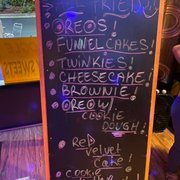 FRIED
OREOS!
FUNNEL CAKES!
TWINKIES!
CHEESECAKE!
BROWNIE!
OREO W/
COOKIE
DOUGH!
RED
VELVET
CAKE!
COOKIE
SWEETS